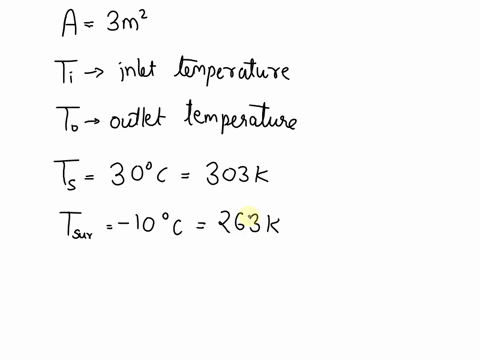 A = 3m²
Ti → inlet temperature
To → outlet temperature
Ts = 30°C = 303K
Tsur = -10°C = 263K